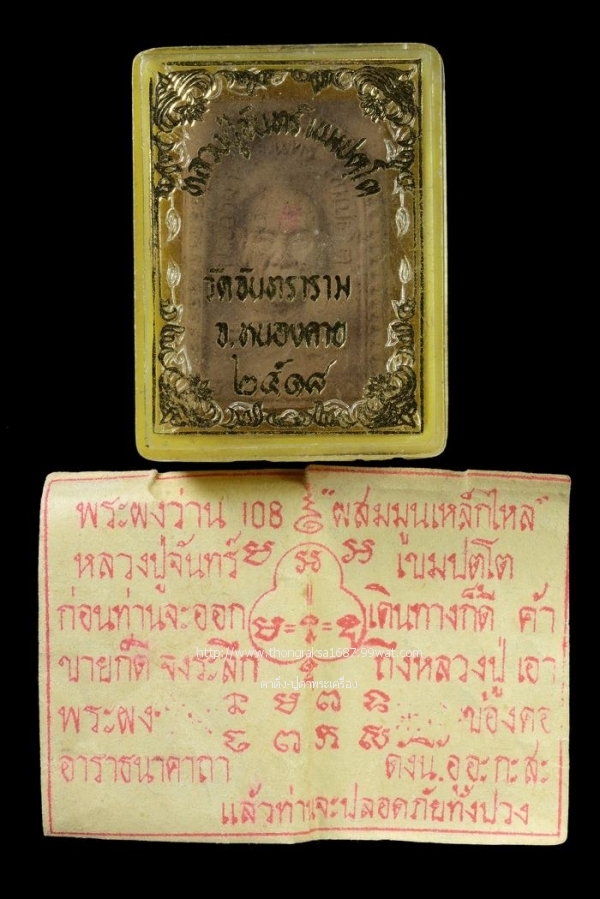 หลวงปู่จันทร์ เขมปตฺโต
วัดจันทราราม
จ.หนองคาย
๒๕๑๘
พระผงว่าน 108 "ผสมมูนเหล็กไหล"
หลวงปู่จันทร์ เขมปตฺโต
ก่อนท่านจะออก เดินทางก็ดี ค้า
ขายก็ดี จงระลึก ถึงหลวงปู่ เอา
http://www.thongraksa1687.99wat.com
ตาตึ๋ง-ปุ๊ดาพระเครื่อง
พระผง ข้องคอ
อาราธนาคาถา ดังนี้.อุอะกะสะ
แล้วท่านจะปลอดภัยทั้งปวง